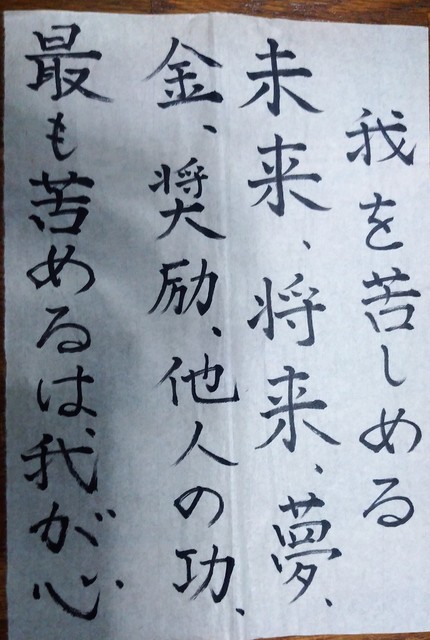 我を苦しめる
未来、将来、夢、
金、奨励、他人の功、
最も苦めるは、我が心